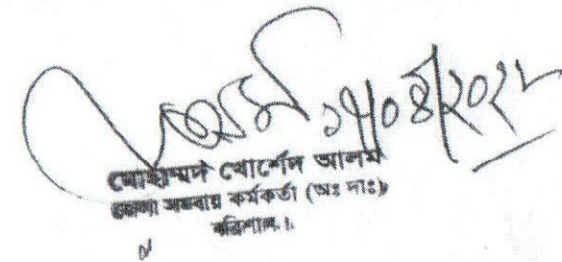 ১৭/০৪/২০২৮
মোহাম্মদ খোর্শেদ আলম
জেলা সমবায় কর্মকর্তা (অঃ দাঃ)
বরিশাল।